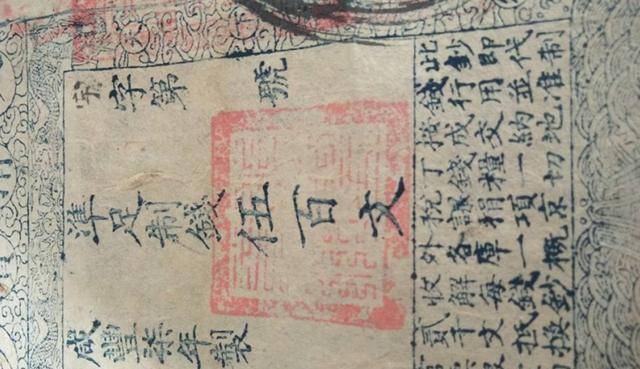 字第號
準足制錢伍百文
咸豐柒年製
此鈔即代制
錢行用並准
按成交納地
丁錢糧一切
稅課捐項京
外各庫一概
收解每錢鈔
貳千文抵換